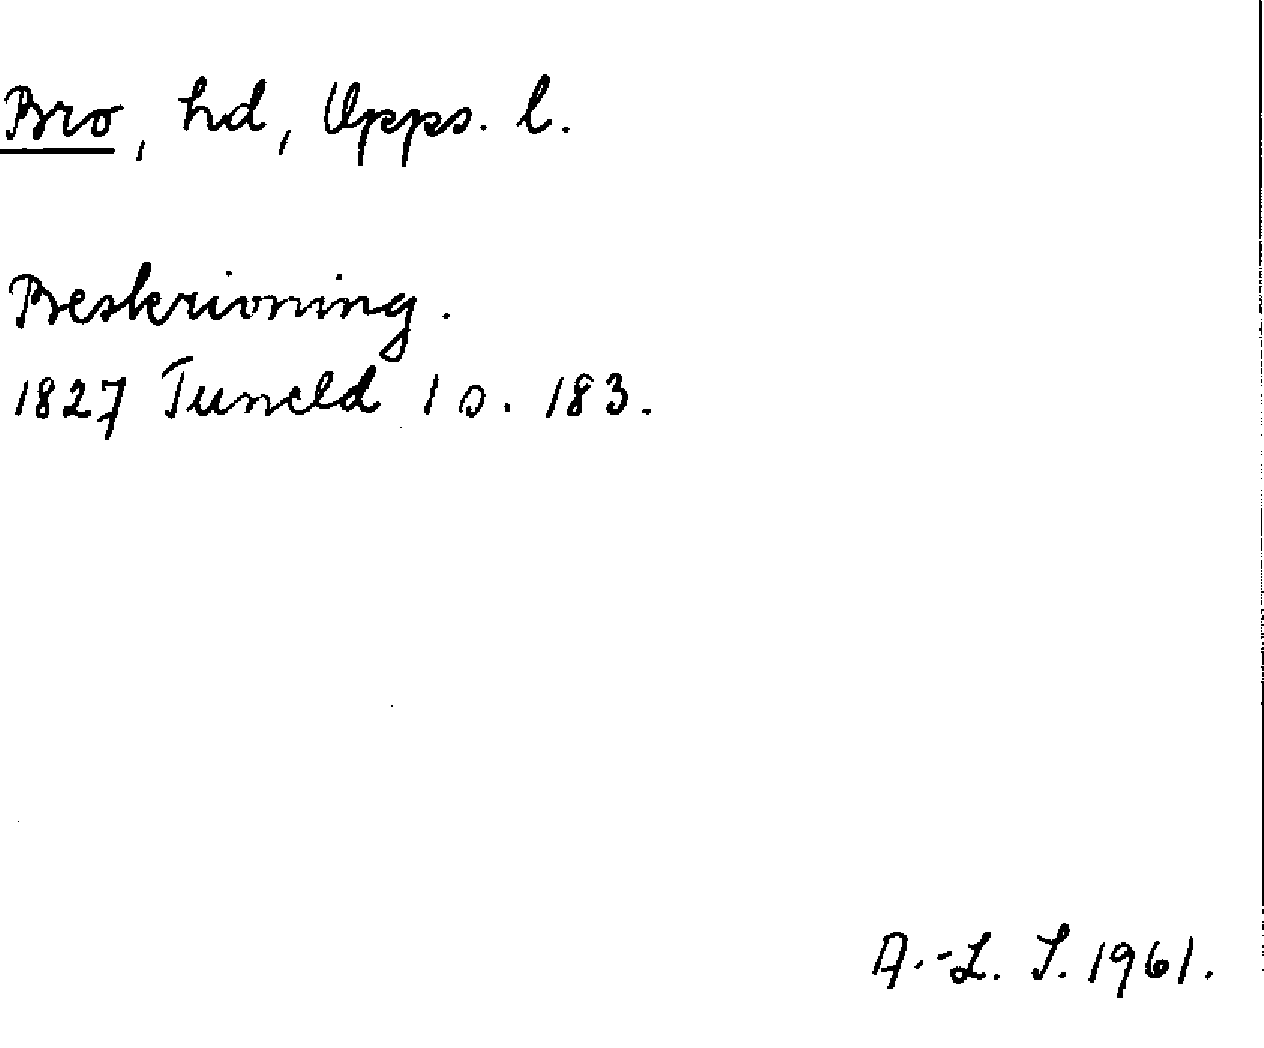 Bro, hd, Upps. l.
Beskrivning.
1827 Tuneld 1 s. 183.
A.-L. S. 1961.